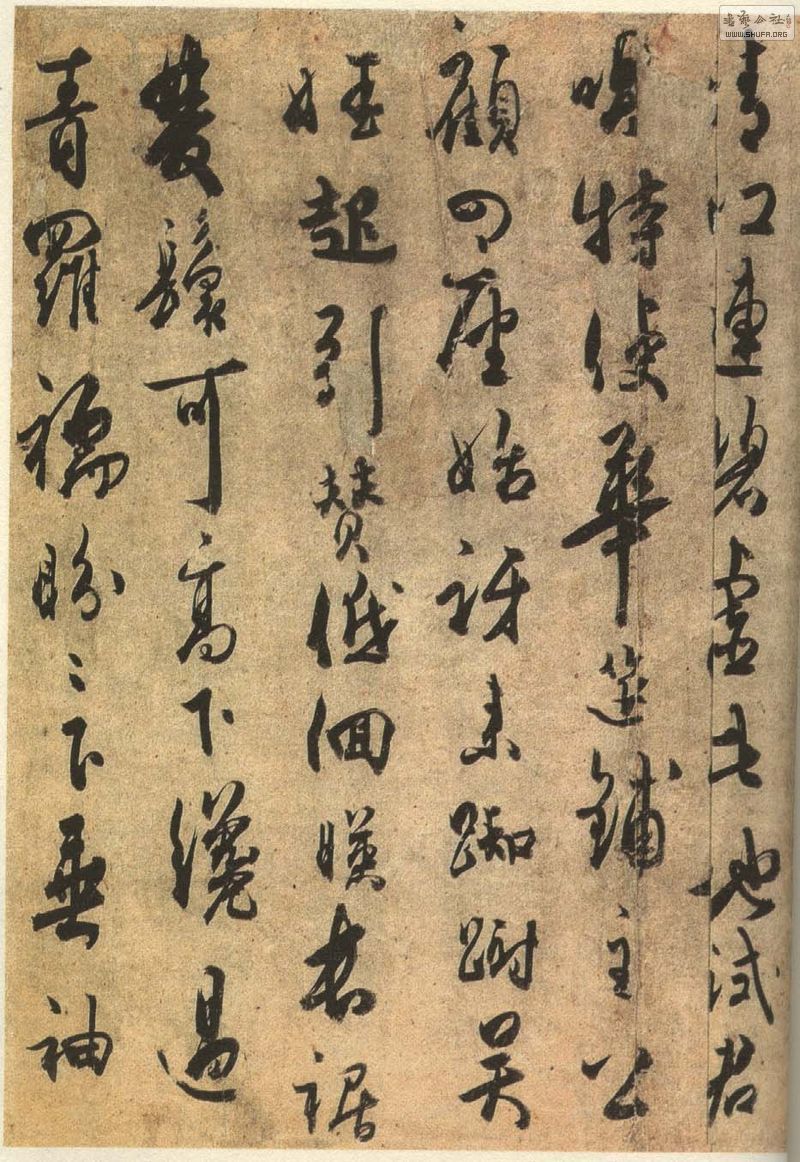 書藝公社
WWW.SHUFA.ORG
江連碧虛此地試君
唱特使華筵鋪主公
顧四座始訝來踟躕吳
娃起引贊低佪暎長裾
雙鬟可高下纔過
青羅襦盼〻下垂袖